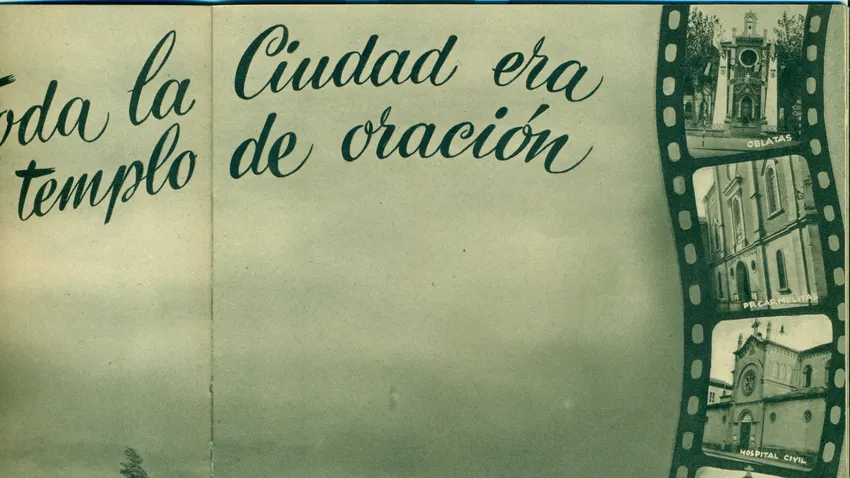 Toda la Ciudad era
templo de oración
OBLATAS
PP. CARMELITAS
HOSPITAL CIVIL